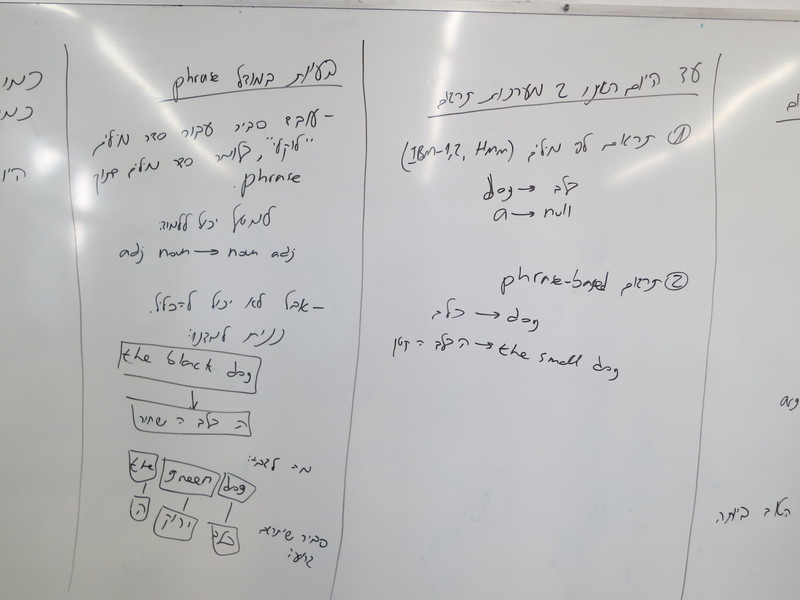 עד היום ראינו 2 מערכות תרגום
① תרגום לפי מילים (IBM-1,2, HMM)
dog → כלב
a → null
② תרגום phrase-based
כלב → dog
הכלב הקטן → the small dog
האב ביתה
בעיות במודל phrase
- עובד סביר עבור סדר מילים
"לוקלי", כלומר סדר מילים בתוך
phrase.
למשל יכול ללמוד:
adj noun → noun adj
- אבל לא יכול להכליל.
נניח למדנו:
the black dog
ה כלב ה שחור
מה לגבי:
the green dog
ה ירוק כלב
סביר שיתרגם
גרוע:
כמו